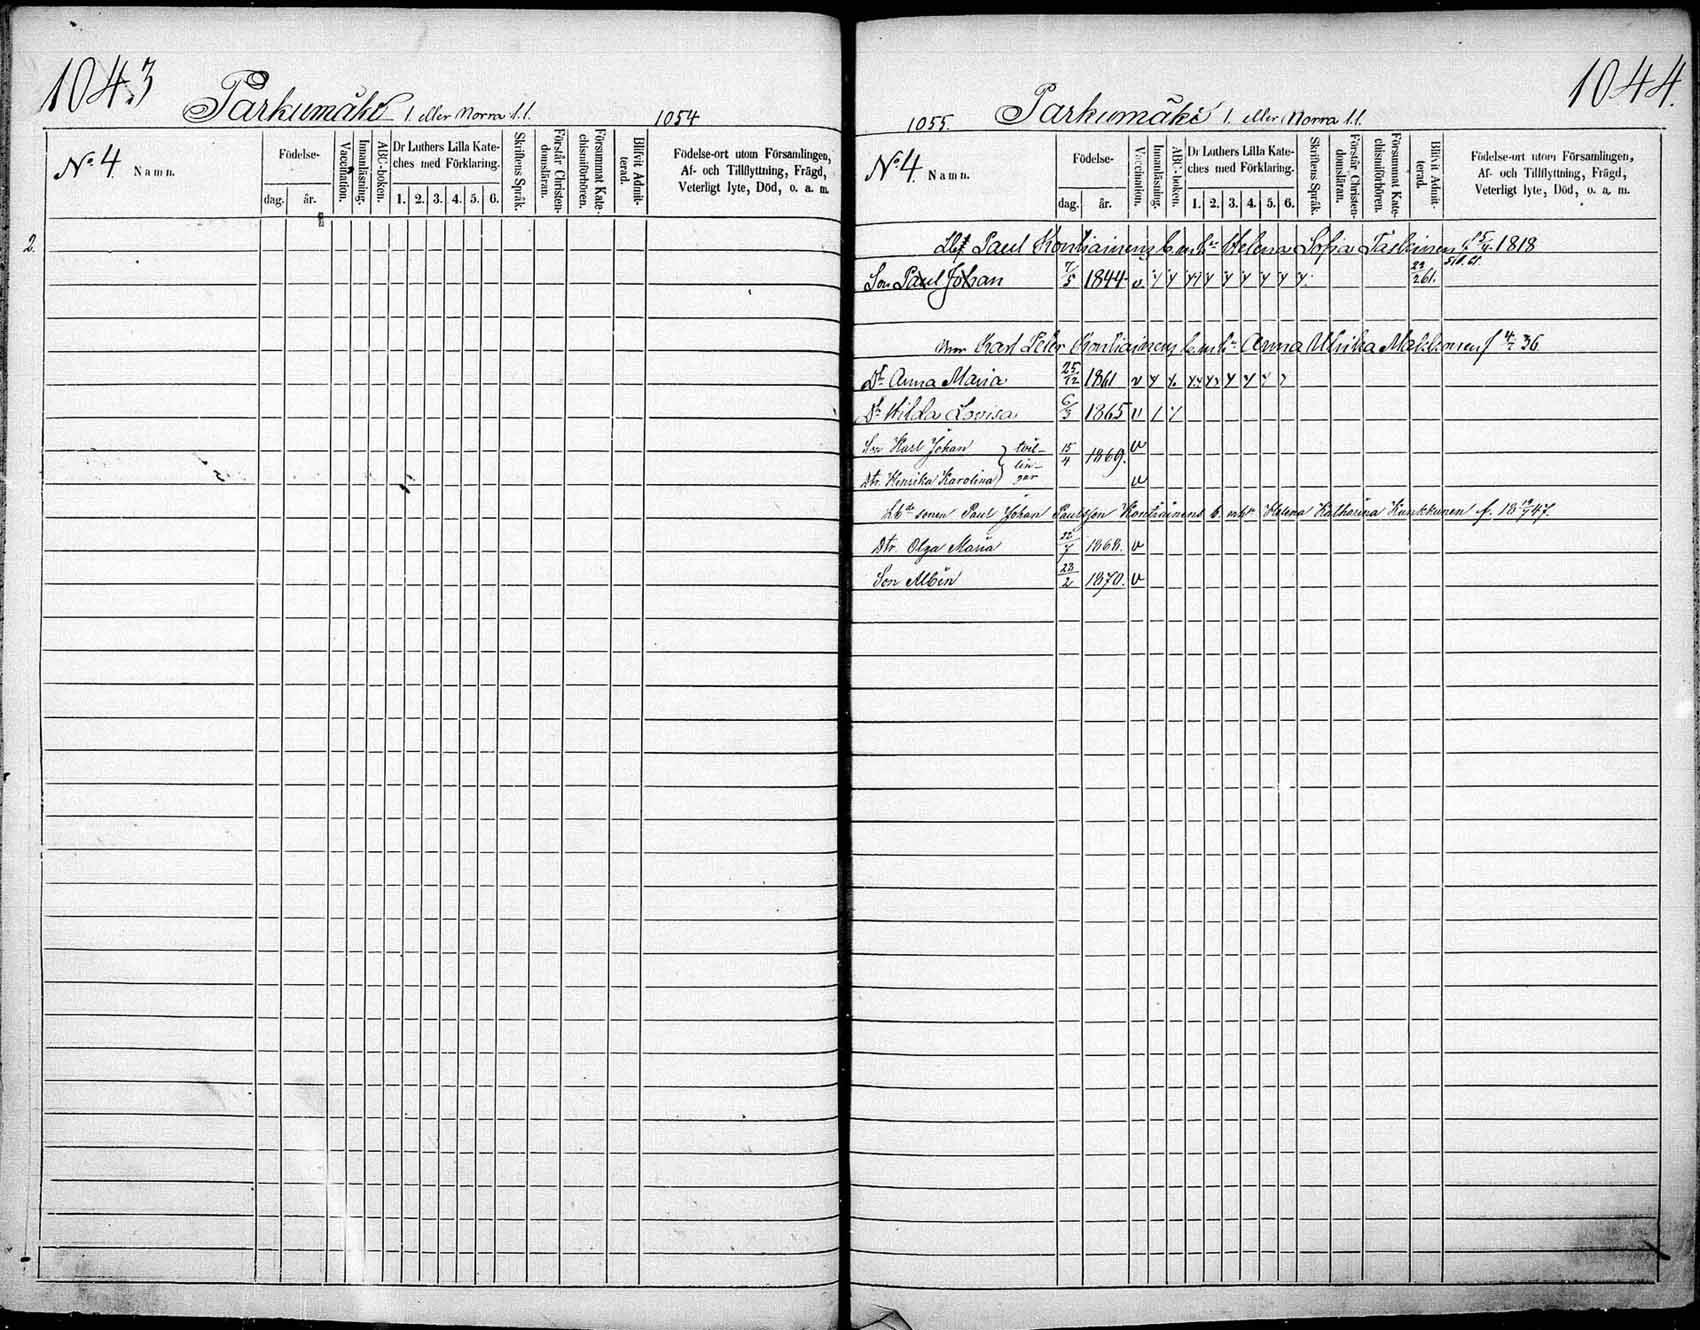 1043
Parkumäki 1. eller Norra
1054
No 4 Namn.
Födelse-
dag.
år.
Vaccination.
Innanläsning.
ABC-boken.
Dr Luthers Lilla Kate-
ches med Förklaring.
1. 2. 3. 4. 5. 6.
Skriftens Språk.
Förstår Christen-
domsläran.
Försummat Kate-
chismiförhören.
Blifvit Admit-
terad.
Födelse-ort utom Församlingen,
Af- och Tillflyttning, Frägd,
Veterligt lyte, Död, o. a. m.
2.
1044.
1055. Parkumäki 1. eller Norra
No 4 Namn.
Födelse-
dag.
år.
Vaccination.
Innanläsning.
ABC-boken.
Dr Luthers Lilla Kate-
ches med Förklaring.
1. 2. 3. 4. 5. 6.
Skriftens Språk.
Förstår Christen-
domsläran.
Försummat Kate-
chismiförhören.
Blifvit Admit-
terad.
Födelse-ort utom Församlingen,
Af- och Tillflyttning, Frägd,
Veterligt lyte, Död, o. a. m.
Paul Kontiainens Helena Sofia Taskinen 1818
Son Paul Johan 7/5 1844 v 22/2 61.
Karl Peter Kontiainens Anna Ulrika Makkonen f 36
Dr Anna Maria 25/12 1861 v
Dr Hilda Lovisa 6/3 1865 v
Son Karl Johan tvil- 15/4 1869. v
Dtr. Henrika Karolina lin- v
gar
sonen Paul Johan Paulsson Kontiainens Helena Katharina Kunkkunen f. 18 47.
Dtr. Olga Maria 22/7 1868. v
Son Albin 23/2 1870. v